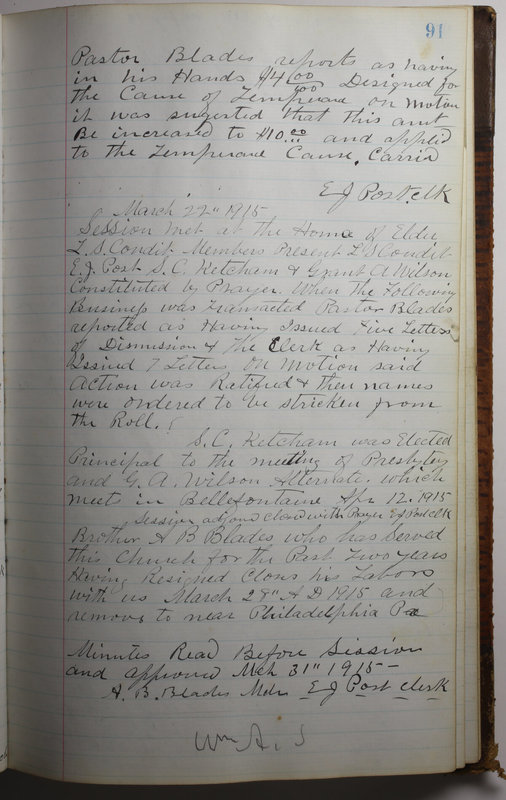 91
Pastor Blades reports as having
in his Hands $4.00 Designed for
the Cause of Temperance on motion
it was sugested that this amt
Be increased to $10.00 and applied
to the Temperance Cause. Carrid
E J Post. clk
March 22" 1915
Session met at the Home of Elder
L. S. Condit Members Present L S Condit
E. J. Post S. C. Ketcham & Grant A Wilson
Constituted by Prayer. When the Following
Business was transacted Pastor Blades
reported as Having Issued Five Letters
of Dismission & the Clerk as Having
Issued 7 Letters on motion said
action was Ratifid & their names
were ordered to be stricken from
the Roll.
S. C. Ketcham was Elected
Principal to the meeting of Presbytery
and G. A. Wilson Alternate. which
meet in Bellefontaine Apr 12. 1915
Session adjornd closd with Prayer E J Post clk
Brother A B Blades who has served
this Church for the Past Two years
Having Resigned Closes his Labors
with us March 28" A D 1915 and
removes to near Philadelphia Pa
Minutes Read Before Session
and approved Mch 31" 1915 –
A. B. Blades Mod. E J Post Clerk
Wm A. S